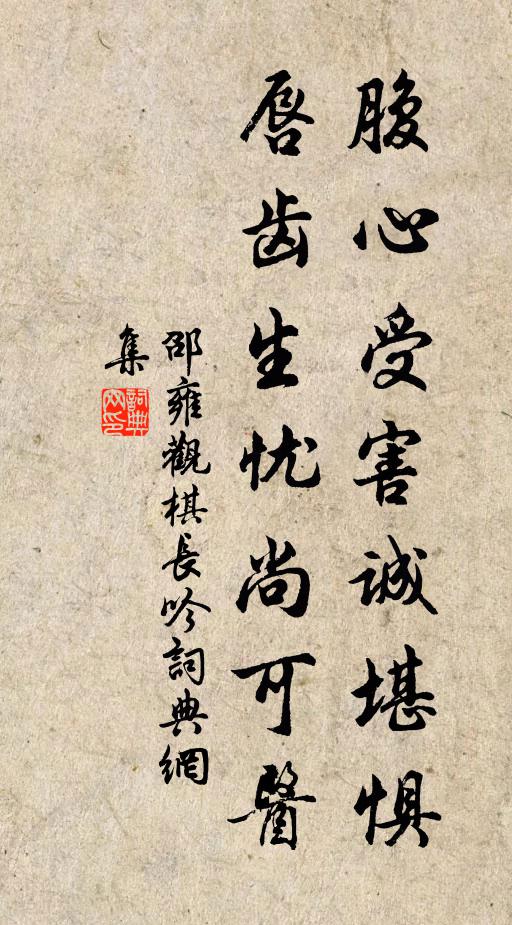 腹心受害诚堪惧
唇齿生忧尚可醫
邵雍觀棋長吟詞典網
集
詞典
网印